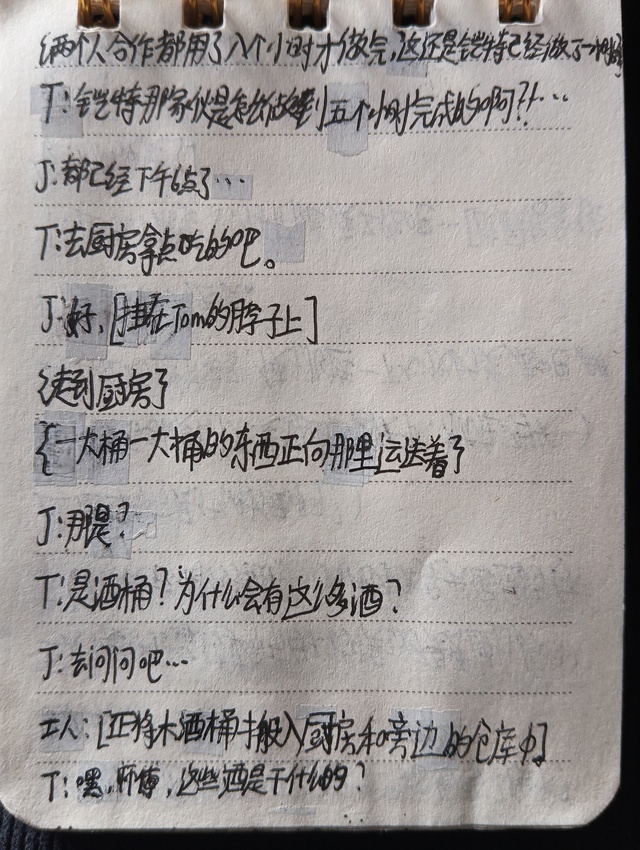 {两个人合作都用了八个小时才做完,这还是铠特已经做了一小时}
T:铠特那家伙是怎么做到五个小时完成的啊?!…
J:都已经下午6点了…
T:去厨房拿点吃的吧。
J:好、[挂在Tom的脖子上]
{走到厨房}
{一大桶一大桶的东西正向那里运送着}
J:那是?
T:是酒桶?为什么会有这么多酒?
J:去问问吧…
工人:[正将木酒桶搬入厨房和旁边的仓库中]
T:嘿,师傅,这些酒是干什么的?